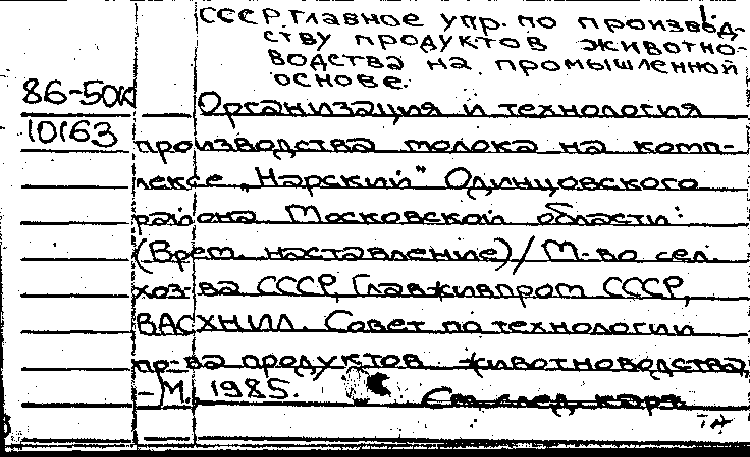 СССР. Главное упр. по производ-
ству продуктов животно-
водства на промышленной
основе.
86-50К
10163
Организация и технология
производства молока на комп-
лексе „Нарский" Одинцовского
района Московской области:
(Врем. наставление)/М-во сел.
хоз-ва СССР, Главживпром СССР,
ВАСХНИЛ. Совет по технологии
пр-ва продуктов животноводства,
- М., 1985.
См. след. карт.